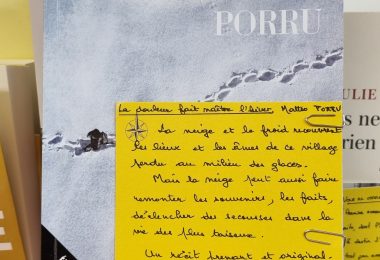 PORRU
La douleur fait naître l'hiver, Matteo PORRU
La neige et le froid recouvrent
les lieux et les âmes de ce village
perdu au milieu des glaces.
Mais la neige peut aussi faire
remonter les souvenirs, les faits,
déclencher des secousses dans la
vie des plus taiseux.
Un récit prenant et original.
ULIE
s ne
rien